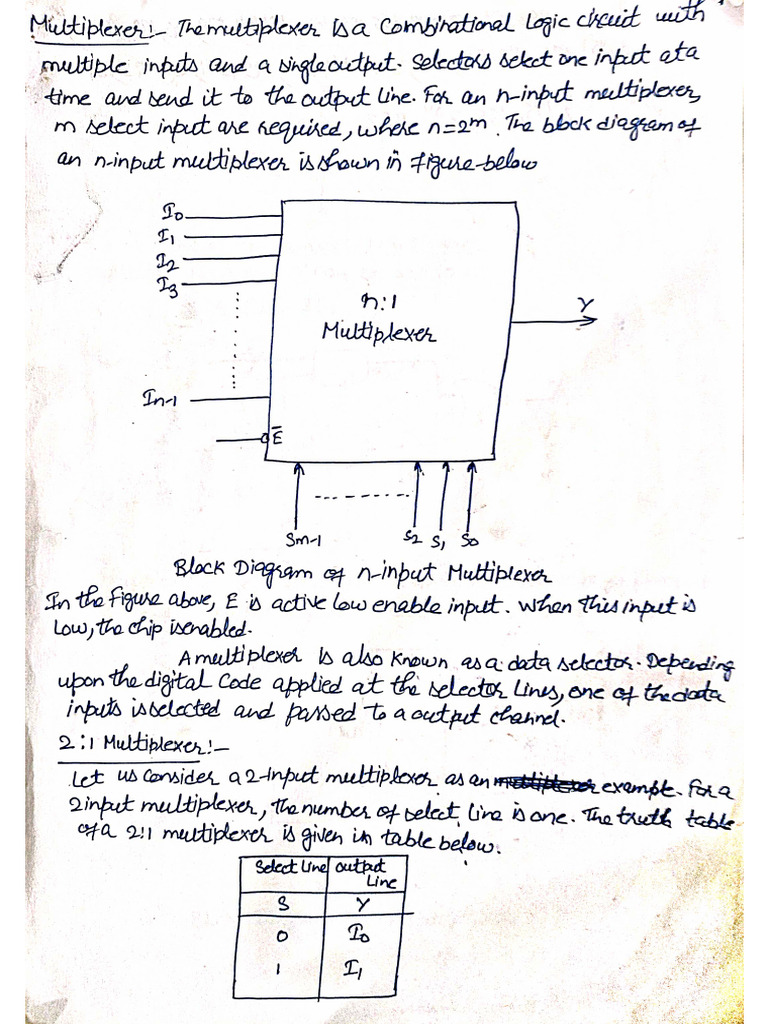 Multiplexer:- The multiplexer is a Combinational Logic circuit with
multiple inputs and a single output. Selectors select one input at a
time and send it to the output line. For an n-input multiplexer,
m select input are required, where n=2ᵐ. The block diagram of
an n-input multiplexer is shown in figure below
I₀
I₁
I₂
I₃
n:1
Multiplexer
Y
Iₙ₋₁
E̅
Sₘ₋₁ S₂ S₁ S₀
Block Diagram of n-input Multiplexer
In the Figure above, E is active low enable input. When this input is
Low, the chip is enabled.
A multiplexer is also known as a data selector. Depending
upon the digital Code applied at the selector Lines, one of the data
inputs is selected and passed to a output channel.
2:1 Multiplexer:-
Let us consider a 2-input multiplexer as an example. For a
2 input multiplexer, the number of select line is one. The truth table
of a 2:1 multiplexer is given in table below.
Select Line output Line
S Y
0 I₀
1 I₁